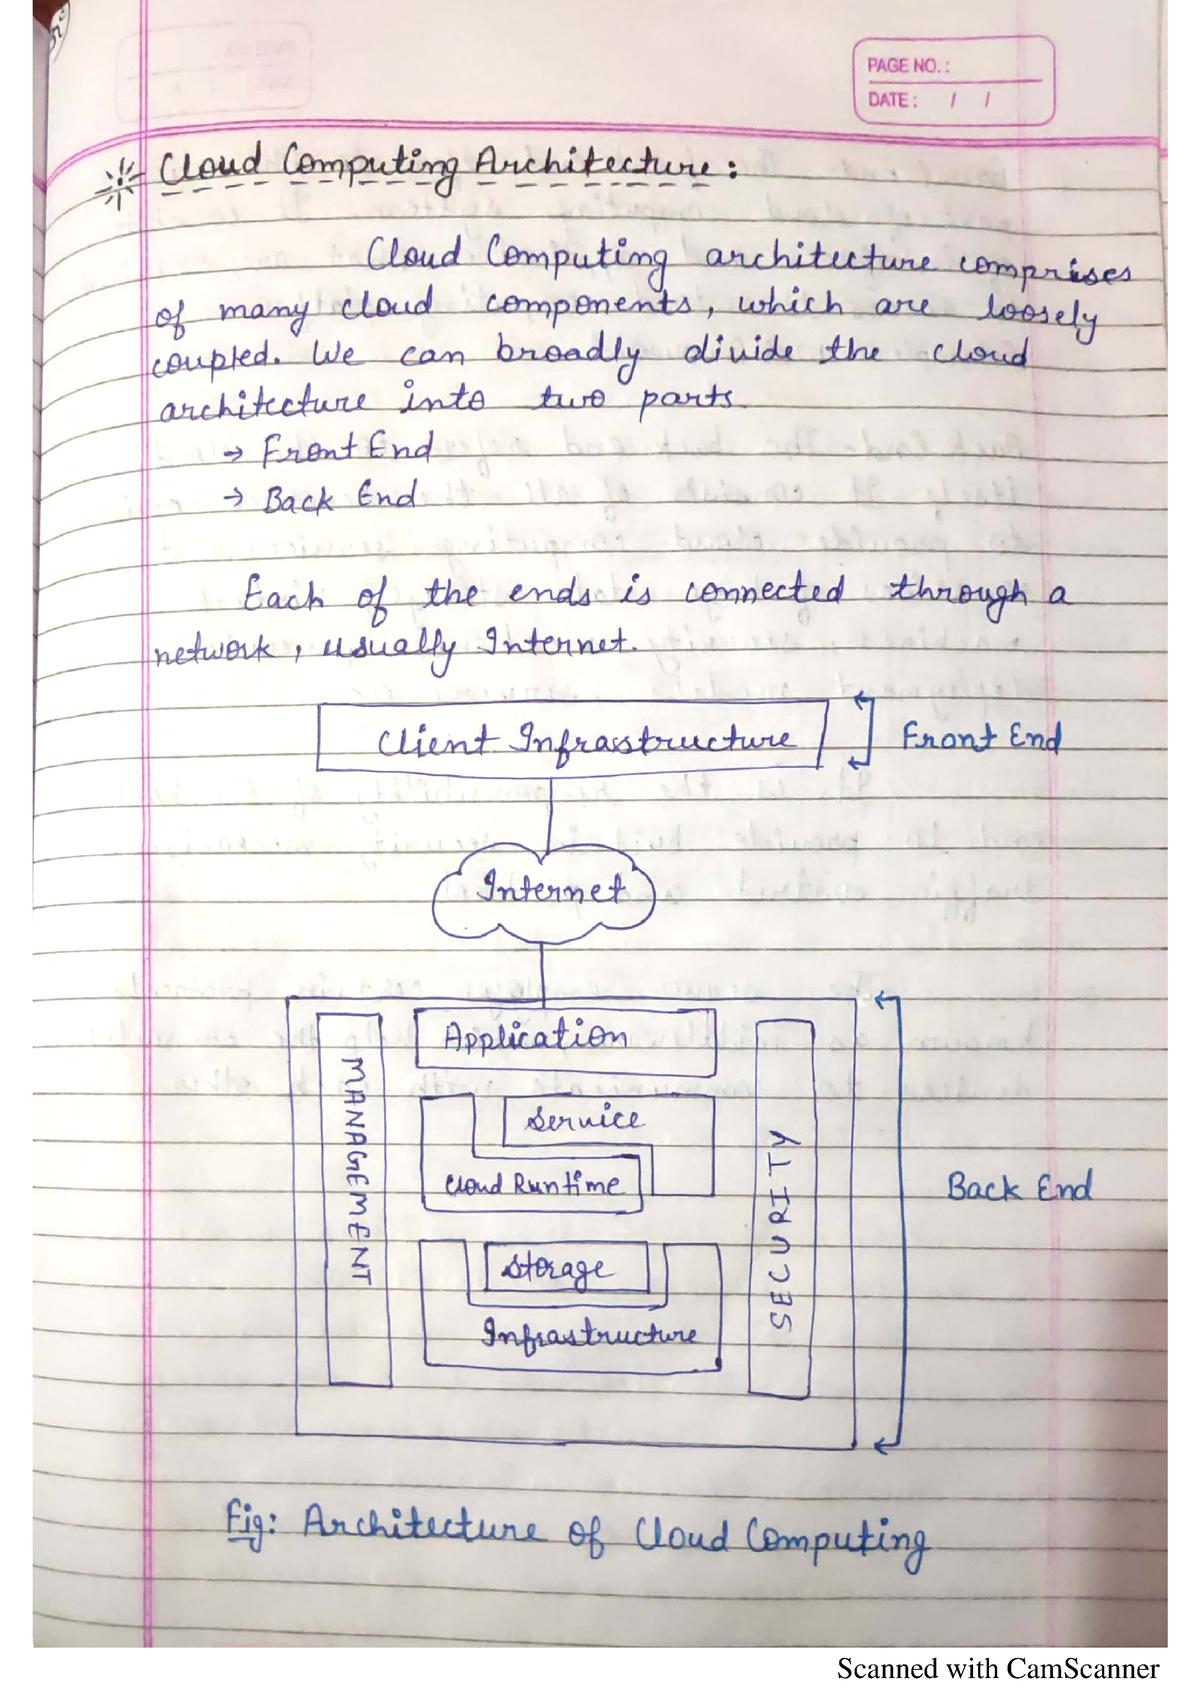 PAGE NO.:
DATE: / /
Cloud Computing Architecture:
Cloud Computing architecture comprises
of many cloud components, which are loosely
coupled. We can broadly divide the cloud
architecture into two parts
→ Front End
→ Back End
Each of the ends is connected through a
network, usually Internet.
Client Infrastructure
Front End
Internet
Application
MANAGEMENT
Service
SECURITY
Cloud Runtime
Back End
Storage
Infrastructure
Fig: Architecture of Cloud Computing
Scanned with CamScanner